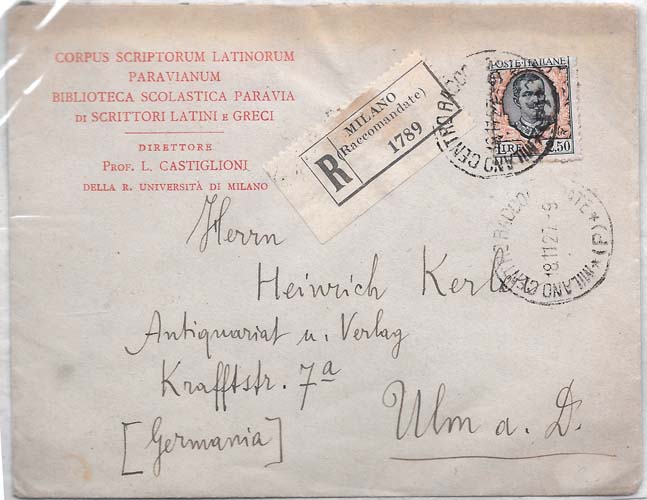 CORPUS SCRIPTORUM LATINORUM
PARAVIANUM
BIBLIOTECA SCOLASTICA PARAVIA
DI SCRITTORI LATINI E GRECI
DIRETTORE
PROF. L. CASTIGLIONI
DELLA R. UNIVERSITÀ DI MILANO
R
MILANO
(Raccomandate)
1789
POSTE·ITALIANE
LIRE 2.50
MILANO CENTRO
18.11.27.-9
MILANO
Herrn
Heinrich Kerl
Antiquariat u. Verlag
Krafftstr. 7a
Ulm a. D.
[Germania]